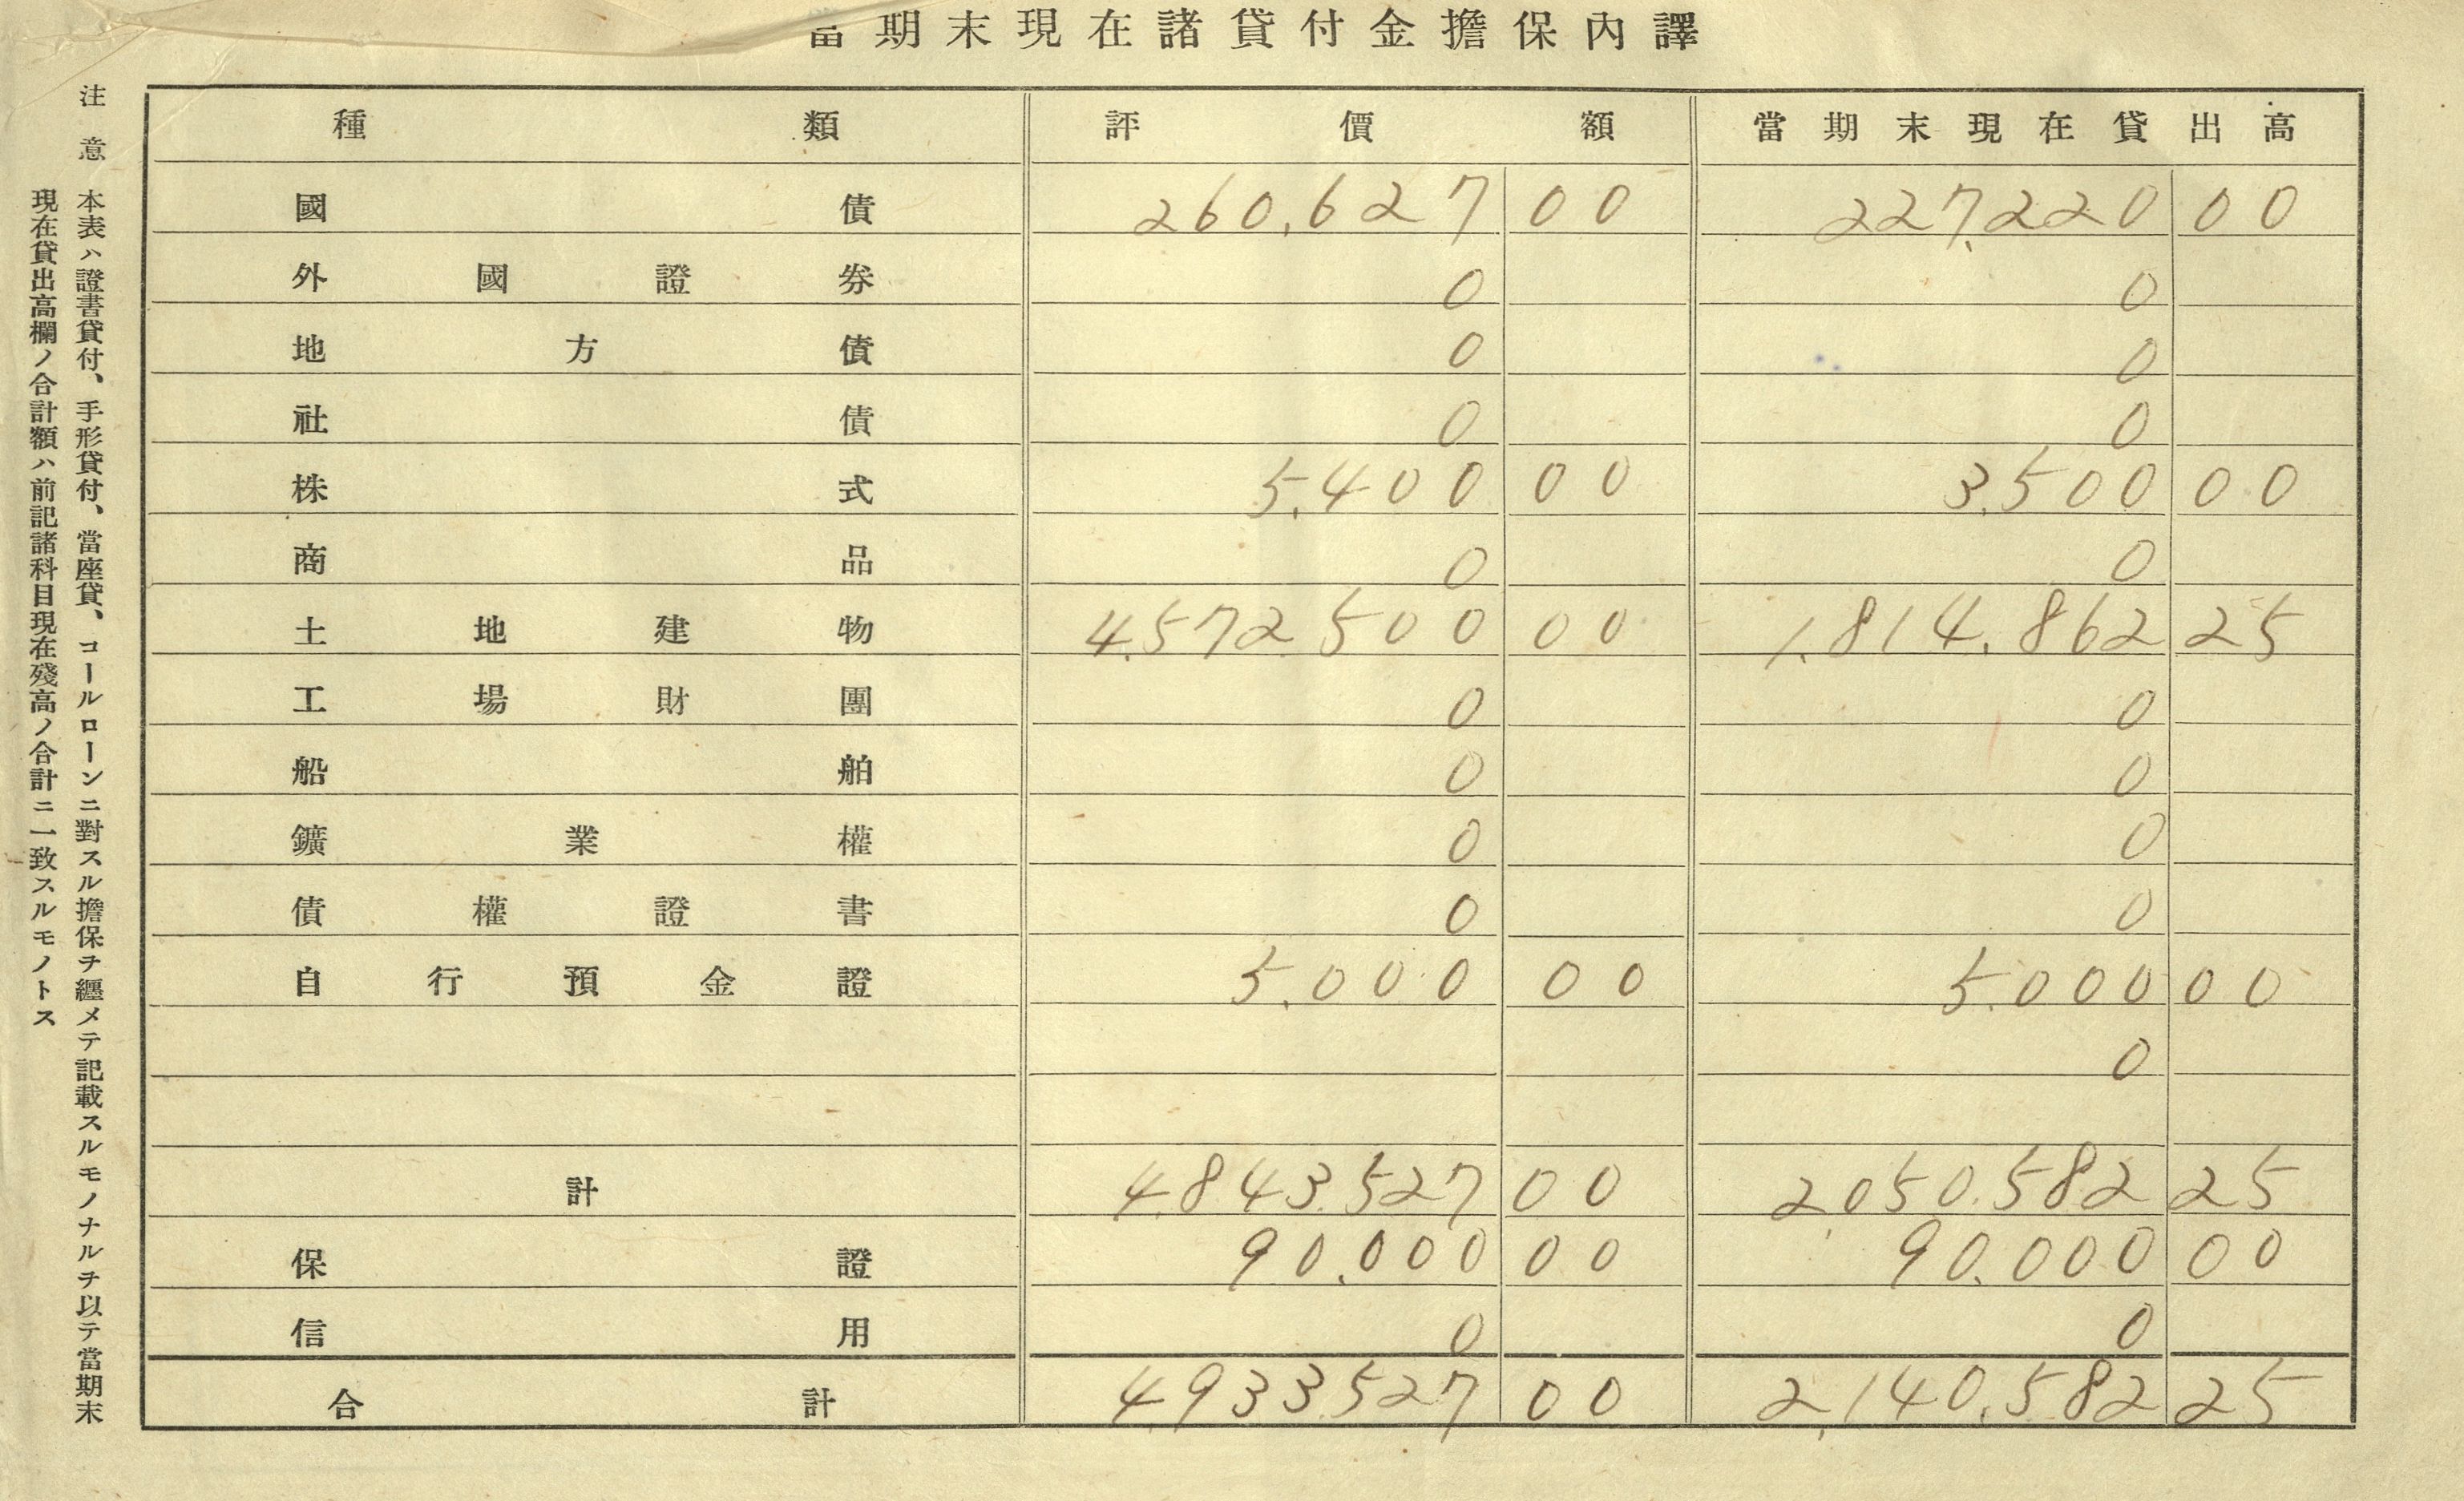 當期末現在諸貸付金擔保內譯
種類 評價額 當期末現在貸出高
國債 260,627 00 227,220 00
外國證券 0 0
地方債 0 0
社債 0 0
株式 5,400 00 3,500 00
商品 0 0
土地建物 4,572,500 00 1,814,862 25
工場財團 0 0
船舶 0 0
鑛業權 0 0
債權證書 0 0
自行預金證 5,000 00 5,000 00
0
計 4,843,527 00 2,050,582 25
保證 90,000 00 90,000 00
信用 0 0
合計 4,933,527 00 2,140,582 25
注意 本表ハ證書貸付、手形貸付、當座貸、コールローンニ對スル擔保ヲ纒メテ記載スルモノナルヲ以テ當期末
現在貸出高欄ノ合計額ハ前記諸科目現在殘高ノ合計ニ一致スルモノトス